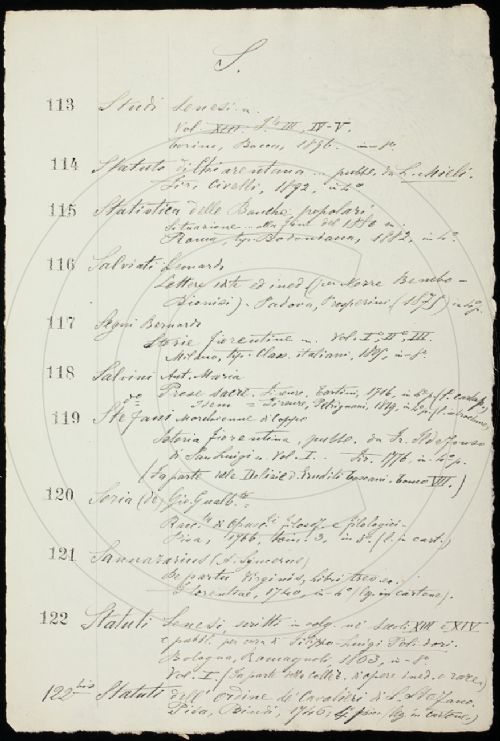 S.
113 Studi Senesi
Vol. XIII. III. IV-V.
Torino, Bocca, 1896. in-8º.
114 Statuto di Chiarentana ... pubb. da L. Mieli.
Civelli, 1892, in-4º
115 Statistica delle Banche popolari
Situazione alla fine del 1880
Roma, tip. Bodoniana, 1882, in 4º.
116 Salviati Leonardo
Lettere edite ed ined. (per Nozze Benebo-
Dionisi). Padova, Prosperini, 1875, in 4º.
117 Segni Bernardo
Storie fiorentine Vol. Iº IIº III.
Milano, tip. Class. italiani, 1805, in-8º
118 Salvini Ant. Maria
Prose sacre. Firenze, Tartini, 1716, in 4º
dº Idem = Firenze,
119 Stefani Marchionne di Coppo
Istoria fiorentina, pubb. da Fr. Ildefonso
di San Luigi Vol. I. Fir. 1776, in 4º
(Fa parte delle Delizie d. Eruditi toscani. Tomo VII.)
120 Soria (de) Gio. Gualb.
Racc. di Opusc. filosof. e filologici.
Pisa, 1766, Tom. 3, in 8º.
121 Sannazarius (A. Syncerus)
De partu Virginis, libri tres
Florentiae, 1740, in 4º (leg. in cartone).
122 Statuti Senesi, scritti in volg. ne' secoli XIII e XIV.
e pubbl. per cura di Filippo-Luigi Polidori.
Bologna, Romagnoli, 1863, in-8º
Vol. I. (Fa parte della collez. d'opere ined. o rare)
122 bis Statuti dell' Ordine de' Cavalieri di S. Stefano.
Pisa, Bindi, 1746, (leg. in cartone.)